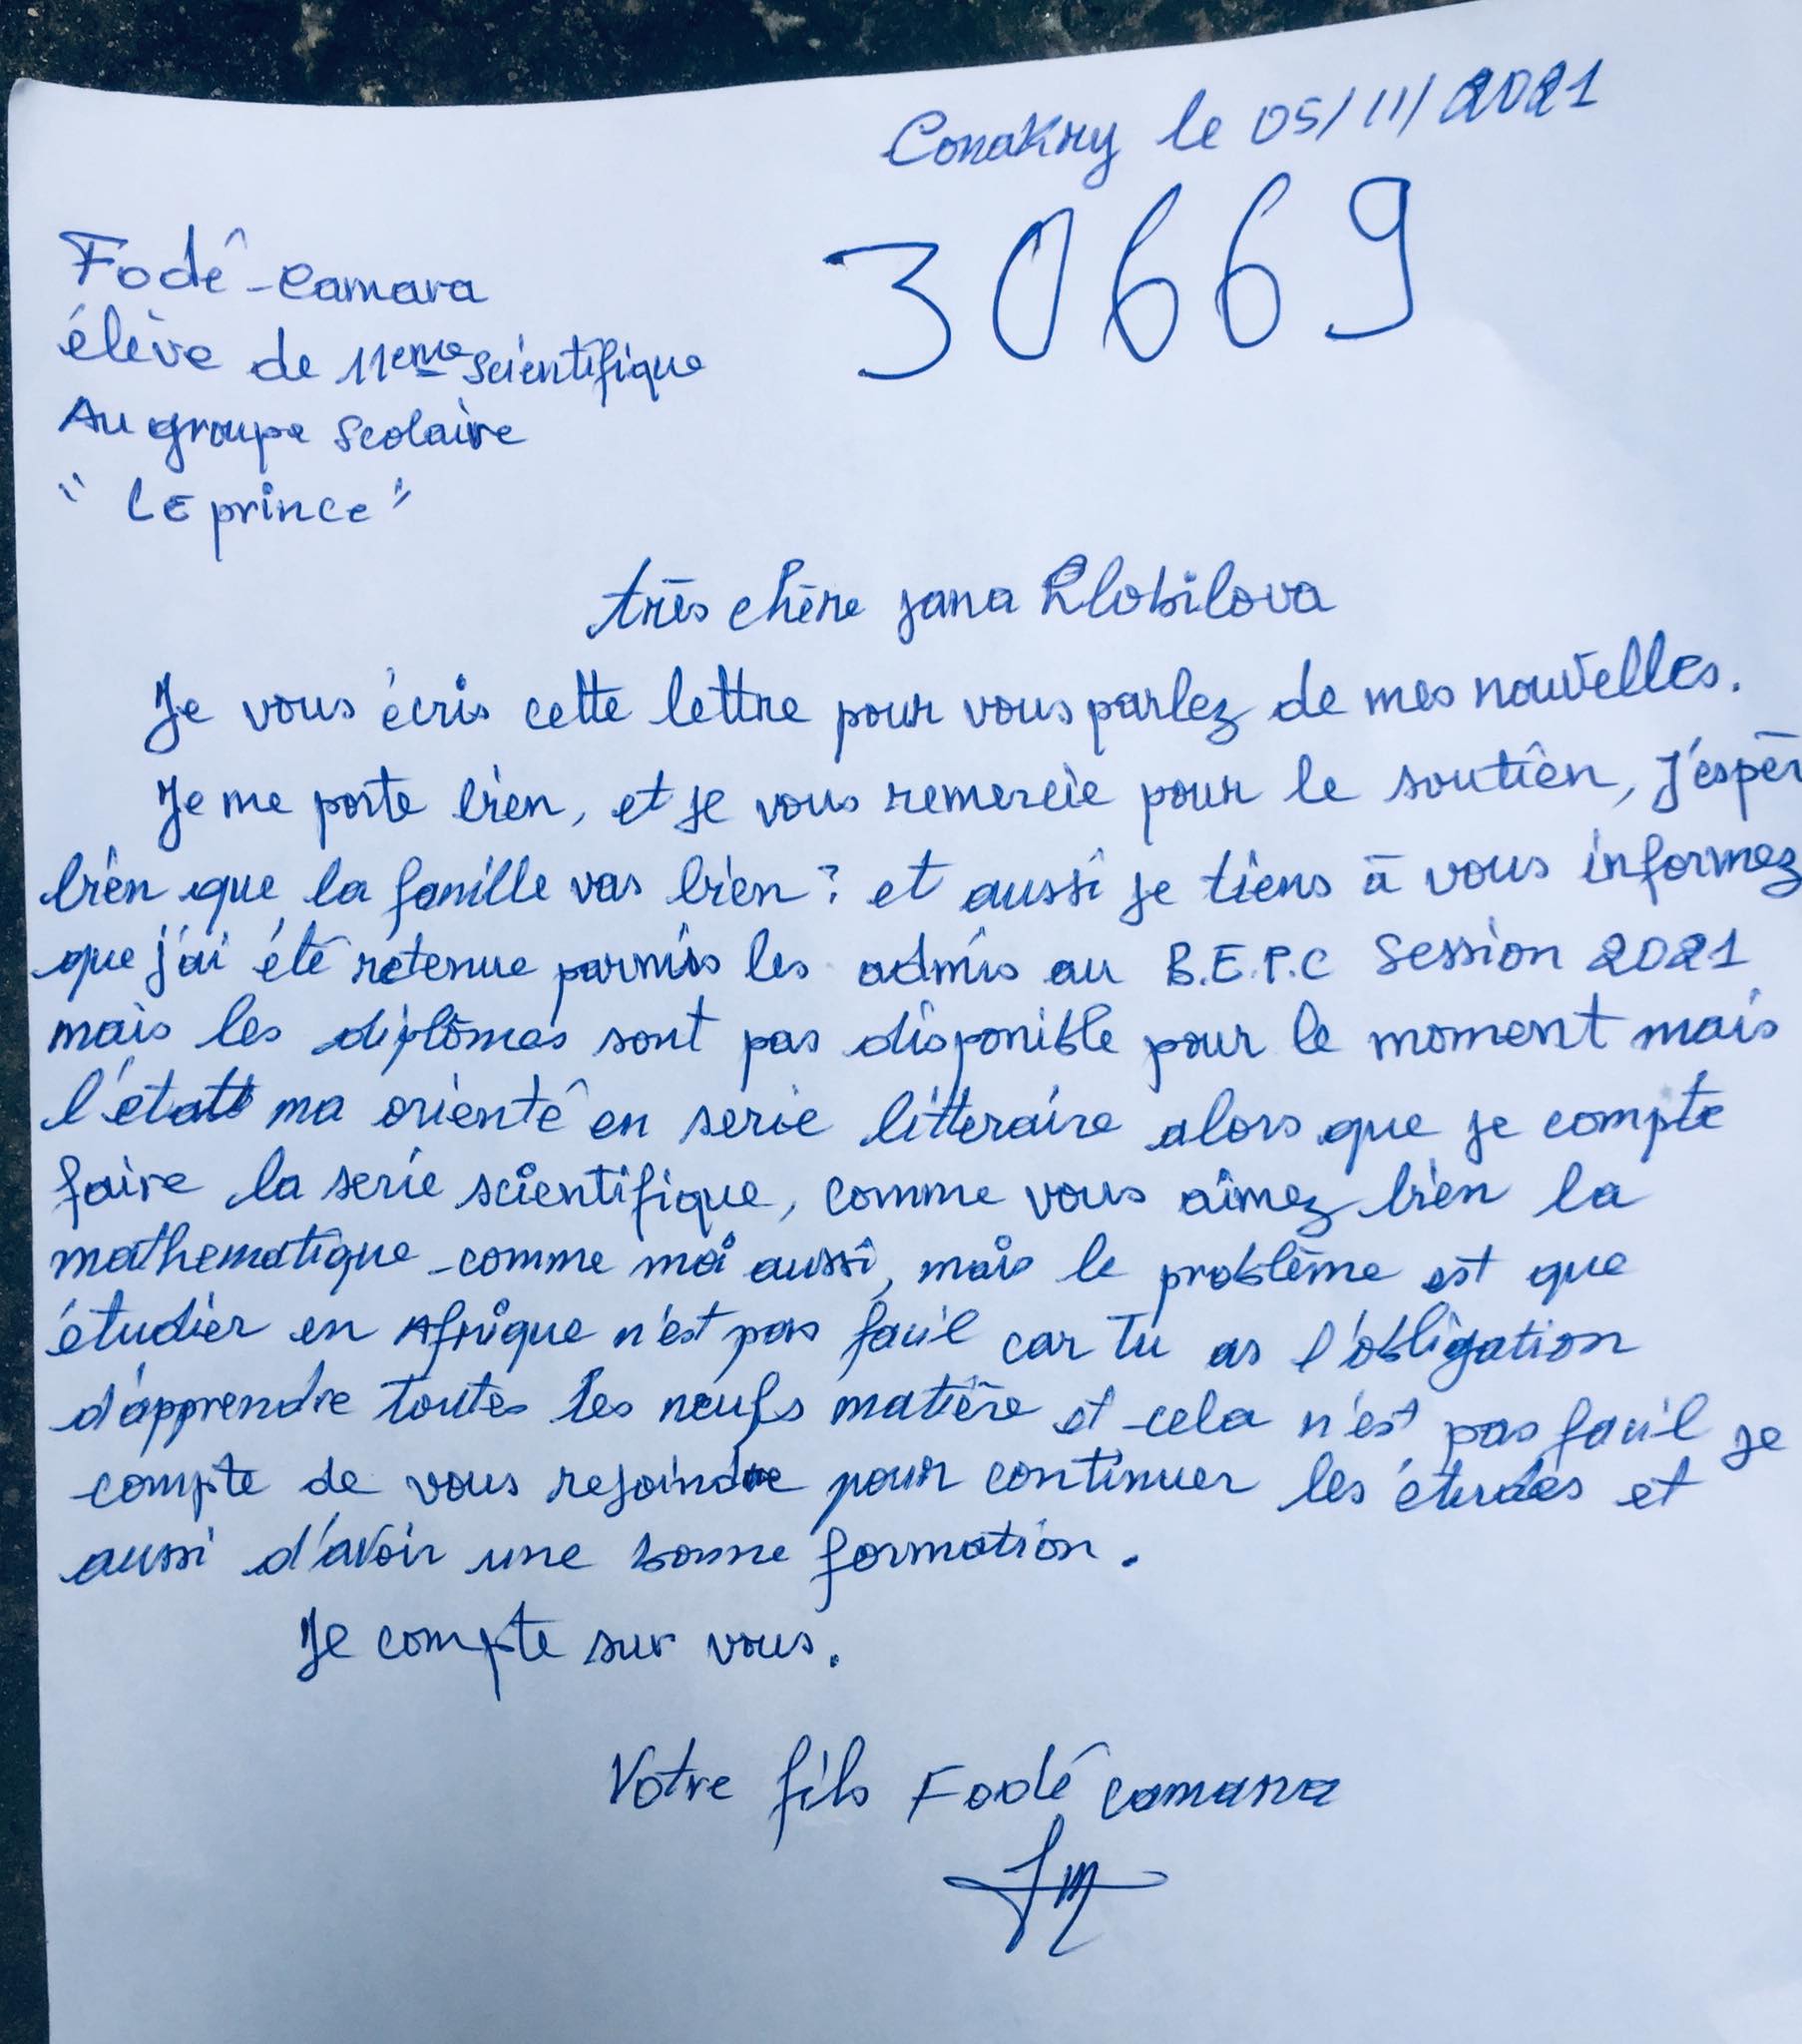 Conakry le 05/11/2021
30669
Fodé-camara
élève de 11eme scientifique
Au groupe scolaire
"LE prince"
très chère jana Rlobilova
Je vous écris cette lettre pour vous parlez de mes nouvelles.
Je me porte bien, et je vous remercie pour le soutien, J'espèr
bien que la famille vas bien? et aussi je tiens à vous informez
que j'ai été retenue parmis les admis au B.E.P.C Session 2021
mais les diplômes sont pas disponible pour le moment mais
l'état ma orienté en serie litteraire alors que je compte
faire la serie scientifique, comme vous aimez bien la
mathematique comme moi aussi, mais le problème est que
étudier en Afrique n'est pas facil car tu as l'obligation
d'apprendre toutes les neufs matière et cela n'est pas facil je
compte de vous rejoindre pour continuer les études et
aussi d'avoir une bonne formation.
Je compte sur vous.
Votre fils Fodé camara